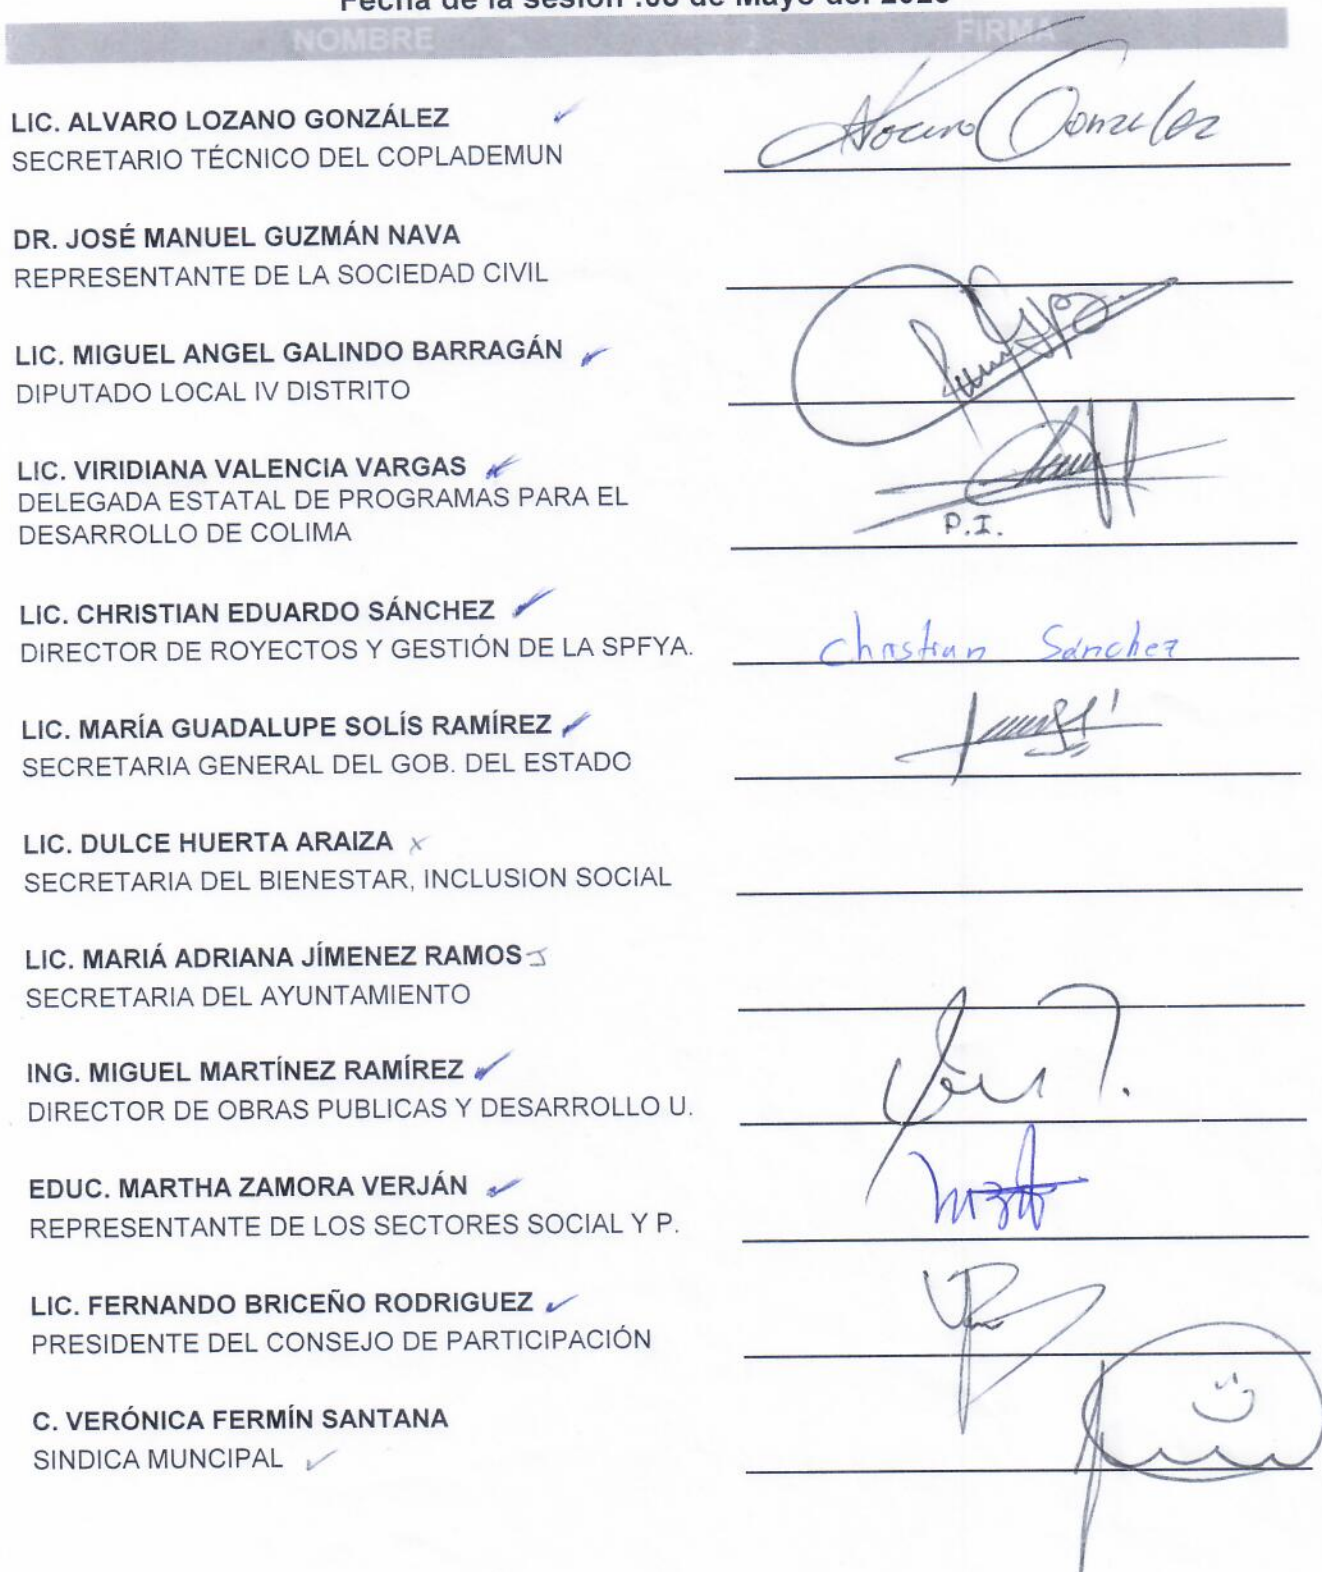 Fecha de la sesión :08 de Mayo del 2020
NOMBRE FIRMA
LIC. ALVARO LOZANO GONZÁLEZ
SECRETARIO TÉCNICO DEL COPLADEMUN
Gonzalez
DR. JOSÉ MANUEL GUZMÁN NAVA
REPRESENTANTE DE LA SOCIEDAD CIVIL
LIC. MIGUEL ANGEL GALINDO BARRAGÁN
DIPUTADO LOCAL IV DISTRITO
LIC. VIRIDIANA VALENCIA VARGAS
DELEGADA ESTATAL DE PROGRAMAS PARA EL
DESARROLLO DE COLIMA
P.I.
LIC. CHRISTIAN EDUARDO SÁNCHEZ
DIRECTOR DE ROYECTOS Y GESTIÓN DE LA SPFYA.
Christian Sánchez
LIC. MARÍA GUADALUPE SOLÍS RAMÍREZ
SECRETARIA GENERAL DEL GOB. DEL ESTADO
LIC. DULCE HUERTA ARAIZA
SECRETARIA DEL BIENESTAR, INCLUSION SOCIAL
LIC. MARIÁ ADRIANA JÍMENEZ RAMOS
SECRETARIA DEL AYUNTAMIENTO
ING. MIGUEL MARTÍNEZ RAMÍREZ
DIRECTOR DE OBRAS PUBLICAS Y DESARROLLO U.
EDUC. MARTHA ZAMORA VERJÁN
REPRESENTANTE DE LOS SECTORES SOCIAL Y P.
LIC. FERNANDO BRICEÑO RODRIGUEZ
PRESIDENTE DEL CONSEJO DE PARTICIPACIÓN
C. VERÓNICA FERMÍN SANTANA
SINDICA MUNCIPAL